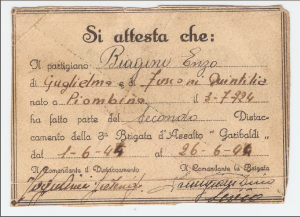 Si attesta che:
Il partigiano Biagini Enzo
di Guglielmo e di Quintilia
nato a Piombino il 3-7-924
ha fatto parte del Secondo Distac-
camento della 3ª Brigata d'Assalto "Garibaldi"
dal 1-6-44 al 26-6-44
Il Comandante il Distaccamento Il Comandante la Brigata